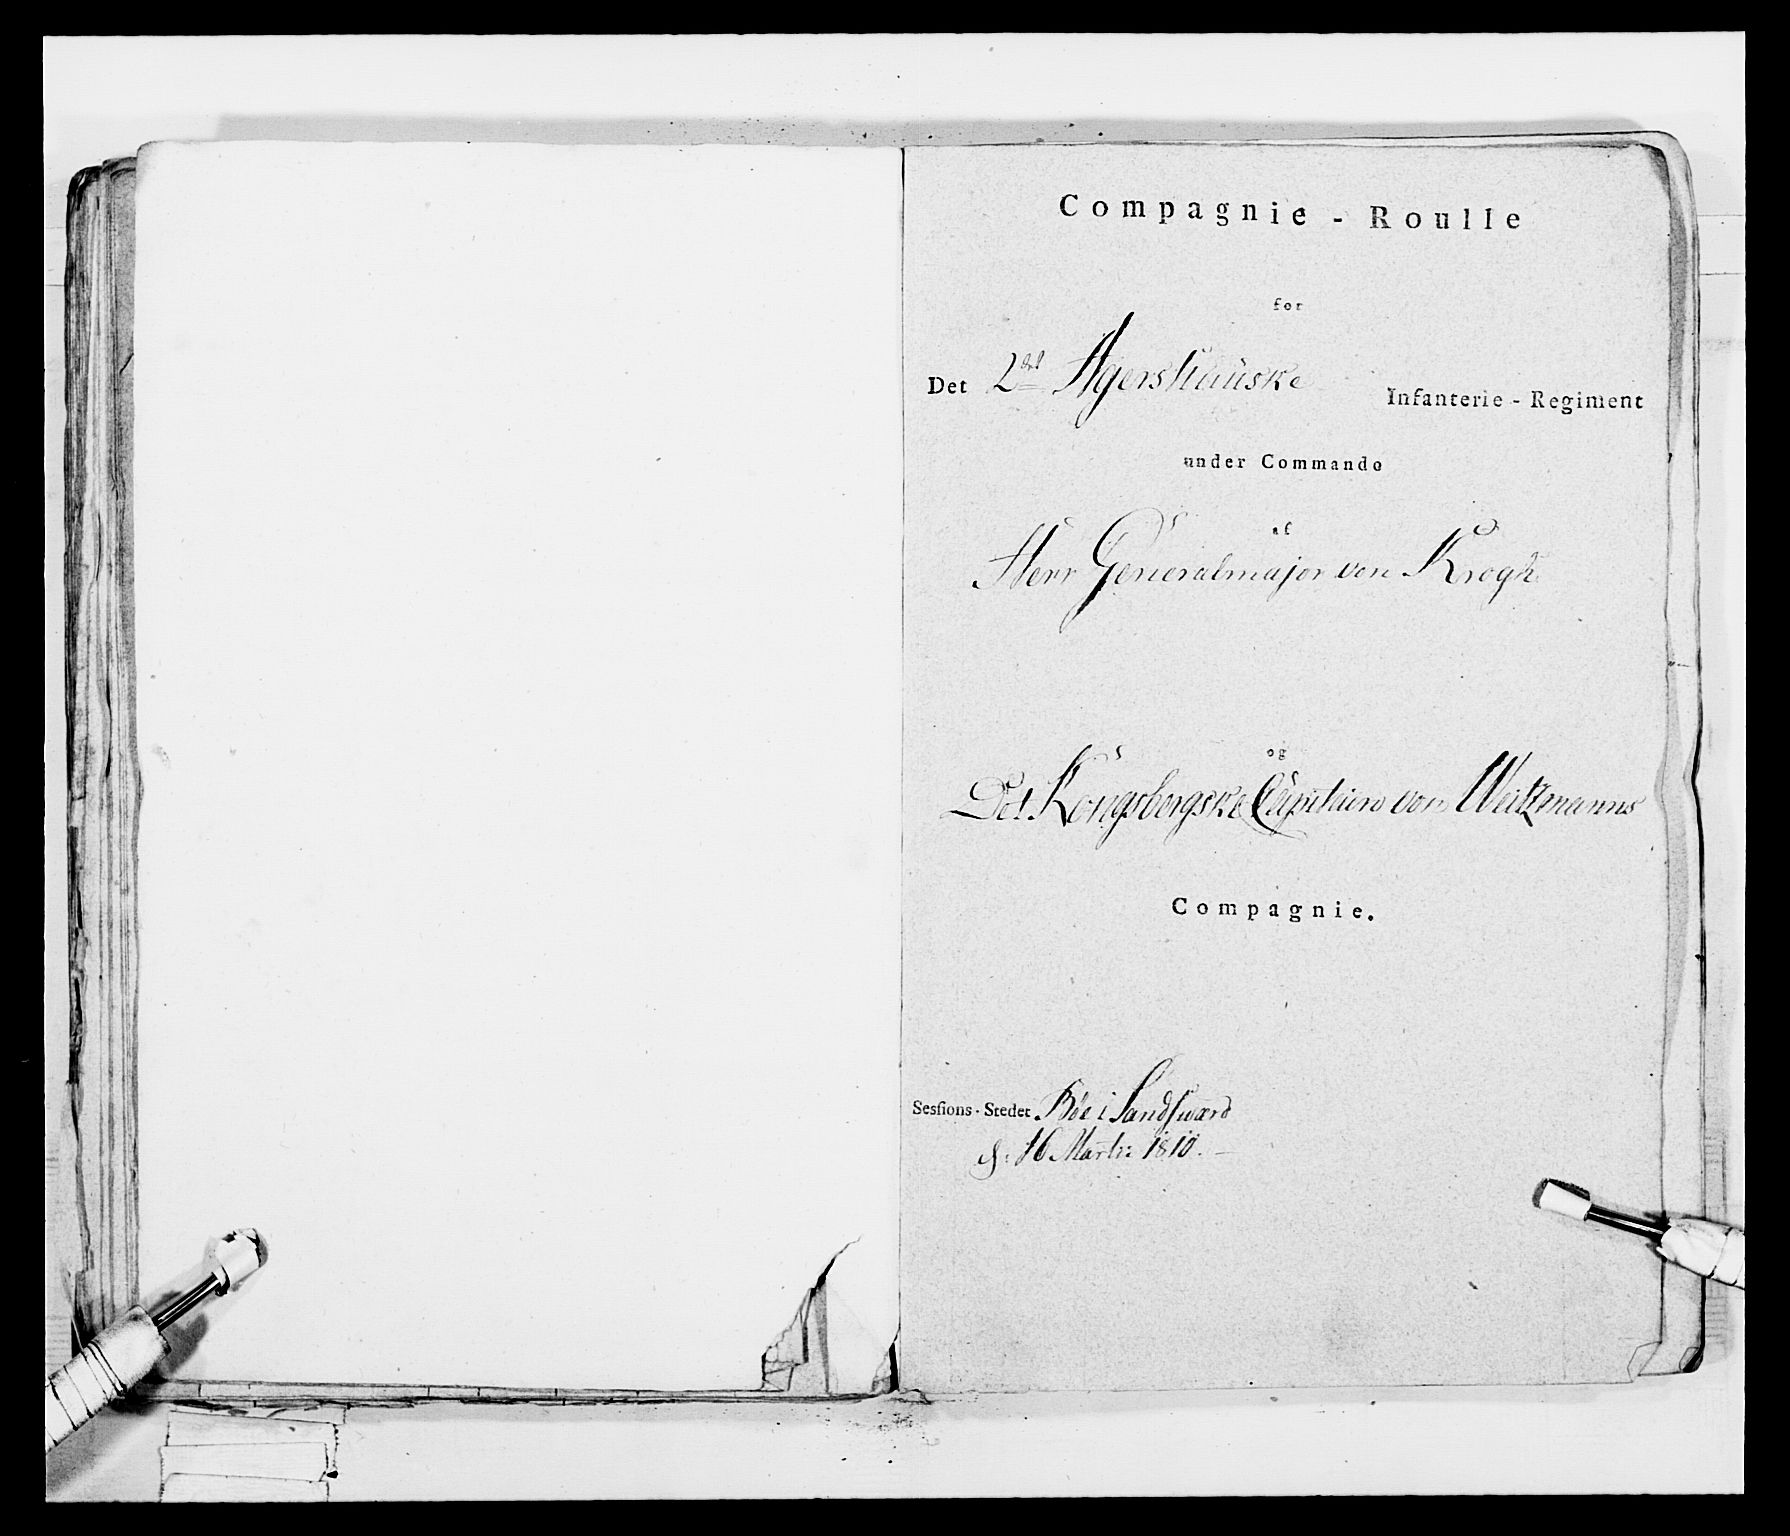 Compagnie - Roulle
for
Det 2det Agershuuske Infanterie - Regiment
under Commando
af
Herr Generalmajor von Krogh
og
Det Kongsbergske Capitain von Weitzmanns
Compagnie.
Sesfions-Stedet Böe i Sandsværd
d: 16 Marti: 1810.